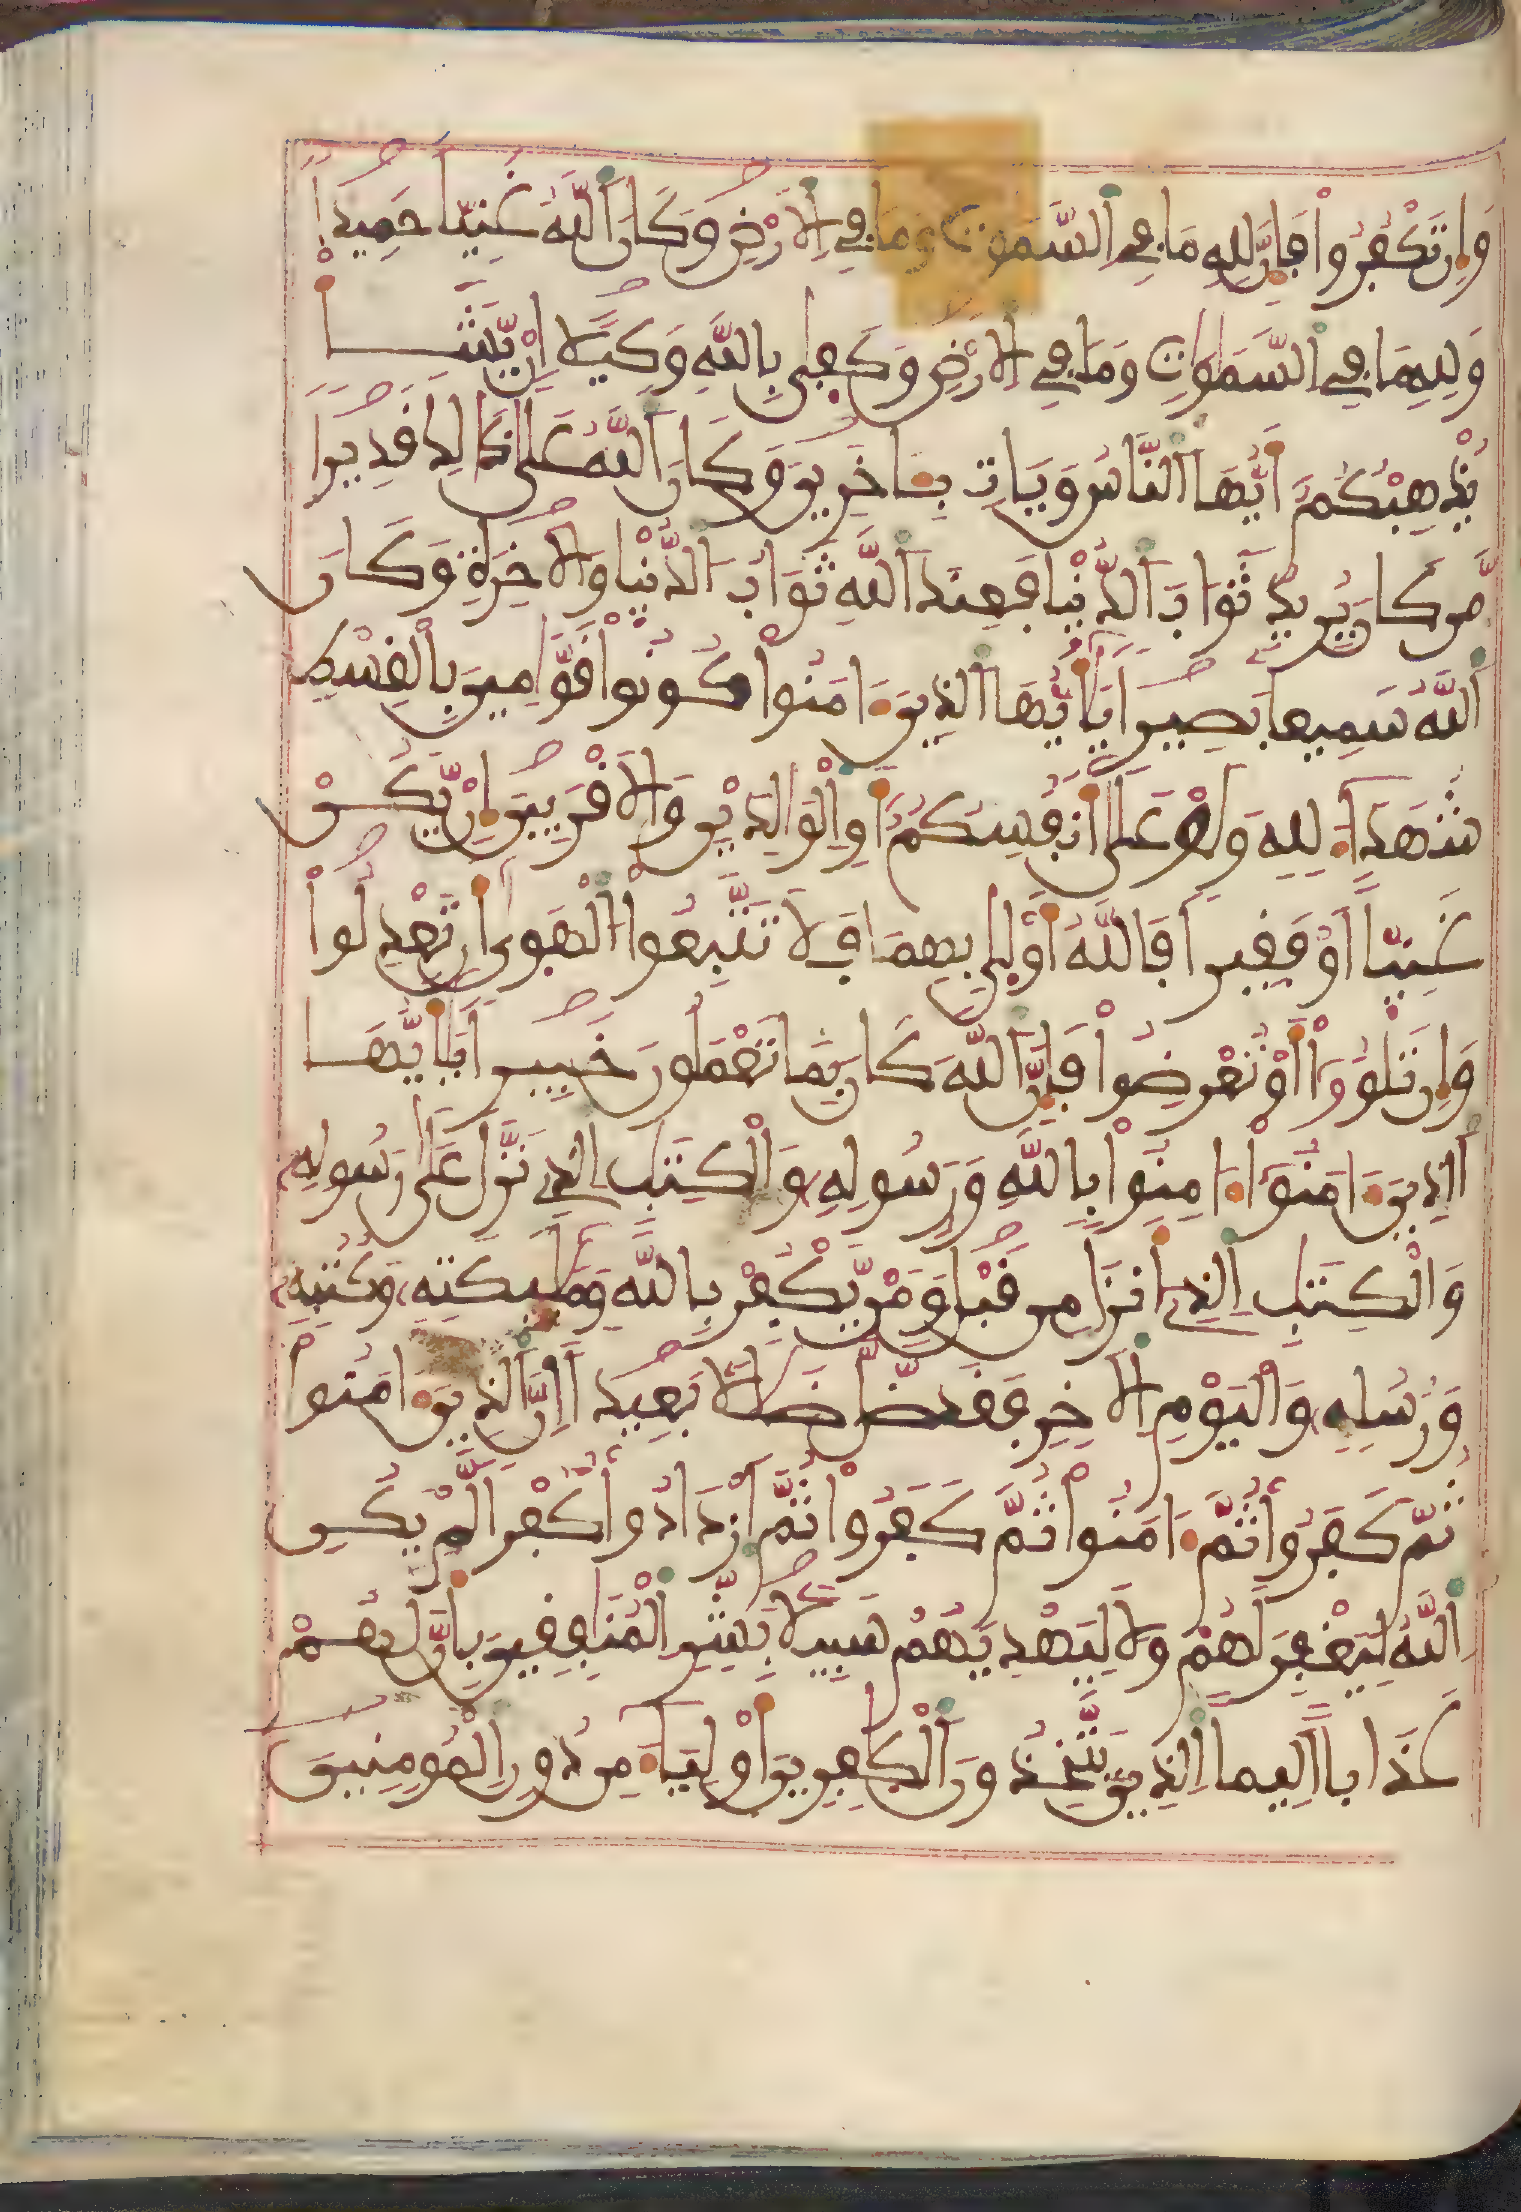 وَإِن تَكْفُرُواْ فَإِنَّ لِلهِ مَا فِي اِلسَّمَٰوَٰتِ وَمَا فِي اِلَارْضِ وَكَانَ اَللَّهُ غَنِيّاً حَمِيداً
وَلِلهِ مَا فِي اِلسَّمَٰوَٰتِ وَمَا فِي اِلَارْضِ وَكَفَىٰ بِاللَّهِ وَكِيلاً اِنْ يَّشَأْ
يُذْهِبْكُمُ أَيُّهَا اَلنَّاسُ وَيَاتِ بِـَٔاخَرِينَ وَكَانَ اَللَّهُ عَلَىٰ ذَٰلِكَ قَدِيراً
مَّن كَانَ يُرِيدُ ثَوَابَ اَلدُّنْيَا فَعِندَ اَللَّهِ ثَوَابُ اَلدُّنْيَا وَالَاخِرَةِ وَكَانَ
اَللَّهُ سَمِيعاً بَصِيراً يَٰأَيُّهَا اَلذِينَ ءَامَنُواْ كُونُواْ قَوَّٰمِينَ بِالْقِسْطِ
شُهَدَآءَ لِلهِ وَلَوْ عَلَىٰ أَنفُسِكُمُ أَوِ اِلْوَٰلِدَيْنِ وَالَاقْرَبِينَ إِنْ يَّكُنْ
غَنِيّاً اَوْ فَقِيراً فَاللَّهُ أَوْلَىٰ بِهِمَا فَلَا تَتَّبِعُواْ اُلْهَوَىٰ أَن تَعْدِلُواْ
وَإِن تَلْوُۥٓاْ أَوْ تُعْرِضُواْ فَإِنَّ اَللَّهَ كَانَ بِمَا تَعْمَلُونَ خَبِيراً يَٰأَيُّهَا
اَلذِينَ ءَامَنُوٓاْ ءَامِنُواْ بِاللَّهِ وَرَسُولِهِۦ وَالْكِتَٰبِ اِلذِي نَزَّلَ عَلَىٰ رَسُولِهِۦ
وَالْكِتَٰبِ اِلذِيٓ أَنزَلَ مِن قَبْلُ وَمَنْ يَّكْفُرْ بِاللَّهِ وَمَلَٰٓئِكَتِهِۦ وَكُتُبِهِۦ
وَرُسُلِهِۦ وَالْيَوْمِ اِلَاخِرِ فَقَد ضَّلَّ ضَلَٰلاً بَعِيداً اِنَّ اَلذِينَ ءَامَنُواْ
ثُمَّ كَفَرُواْ ثُمَّ ءَامَنُواْ ثُمَّ كَفَرُواْ ثُمَّ اَزْدَادُواْ كُفْراً لَّمْ يَكُنِ
اِللَّهُ لِيَغْفِرَ لَهُمْ وَلَا لِيَهْدِيَهُمْ سَبِيلاً بَشِّرِ اِلْمُنَٰفِقِينَ بِأَنَّ لَهُمْ
عَذَاباً اَلِيماً اِلذِينَ يَتَّخِذُونَ اَلْكَٰفِرِينَ أَوْلِيَآءَ مِن دُونِ اِلْمُومِنِينَ